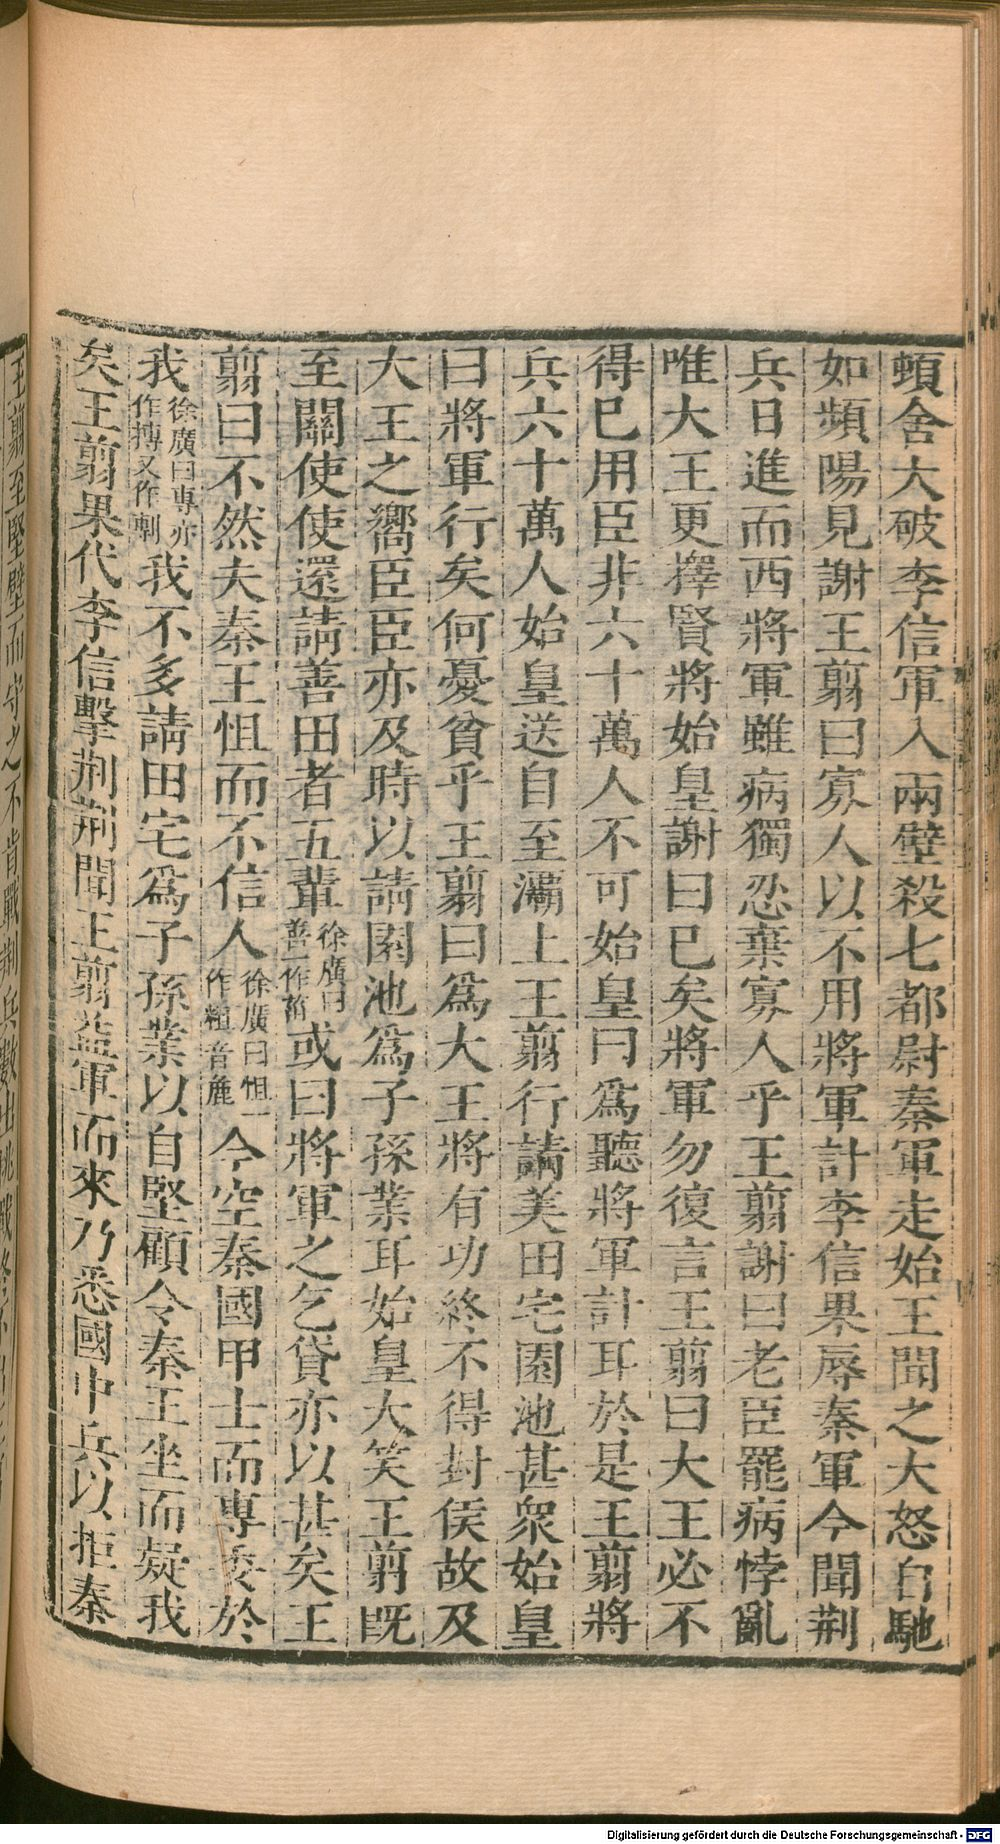 頓舍大破李信軍入兩壁殺七都尉秦軍走始王聞之大怒自馳
如頻陽見謝王翦曰寡人以不用將軍計李信果辱秦軍今聞荆
兵日進而西將軍雖病獨忍棄寡人乎王翦謝曰老臣罷病悖亂
唯大王更擇賢將始皇謝曰已矣將軍勿復言王翦曰大王必不
得已用臣非六十萬人不可始皇曰爲聽將軍計耳於是王翦將
兵六十萬人始皇送自至灞上王翦行請美田宅園池甚衆始皇
曰將軍行矣何憂貧乎王翦曰爲大王將有功終不得封侯故及
大王之嚮臣臣亦及時以請園池爲子孫業耳始皇大笑王翦旣
至關使使還請善田者五輩徐廣曰善一作菑或曰將軍之乞貸亦以甚矣王
翦曰不然夫秦王怚而不信人徐廣曰怚一作粗音麁今空秦國甲士而專委於
我徐廣曰專亦作摶又作剸我不多請田宅爲子孫業以自堅顧令秦王坐而疑我
矣王翦果代李信擊荆荆聞王翦益軍而來乃悉國中兵以拒秦
王翦至堅壁而守之不肯戰荆兵數出挑戰終不
Digitalisierung gefördert durch die Deutsche Forschungsgemeinschaft - DFG